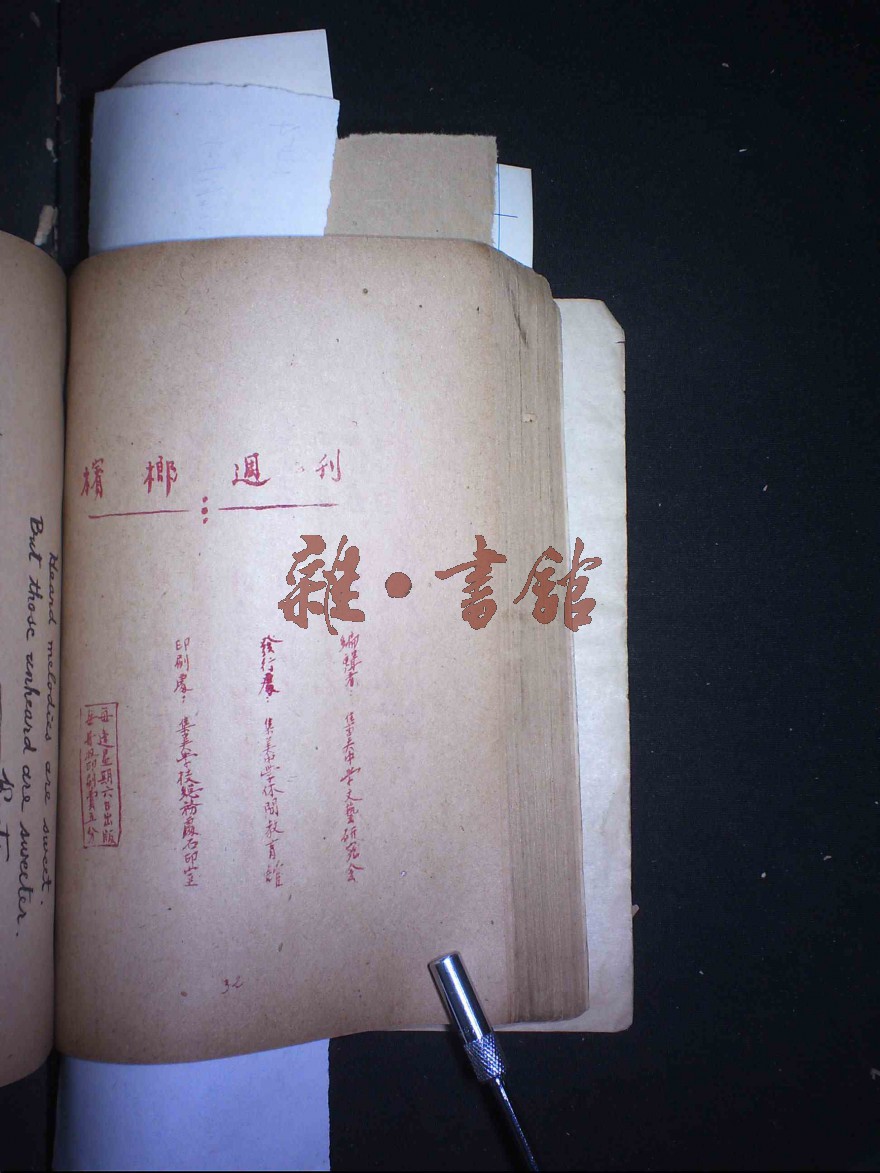 Heard melodies are sweet.
But those unheard are sweeter.
檳榔週刊
雜·書館
編輯者：集美中學文藝研究會
發行處：集美中學休閒教育館
印刷處：集美學校總務處石印室
每逢星期六日出版
每期收印刷費五分